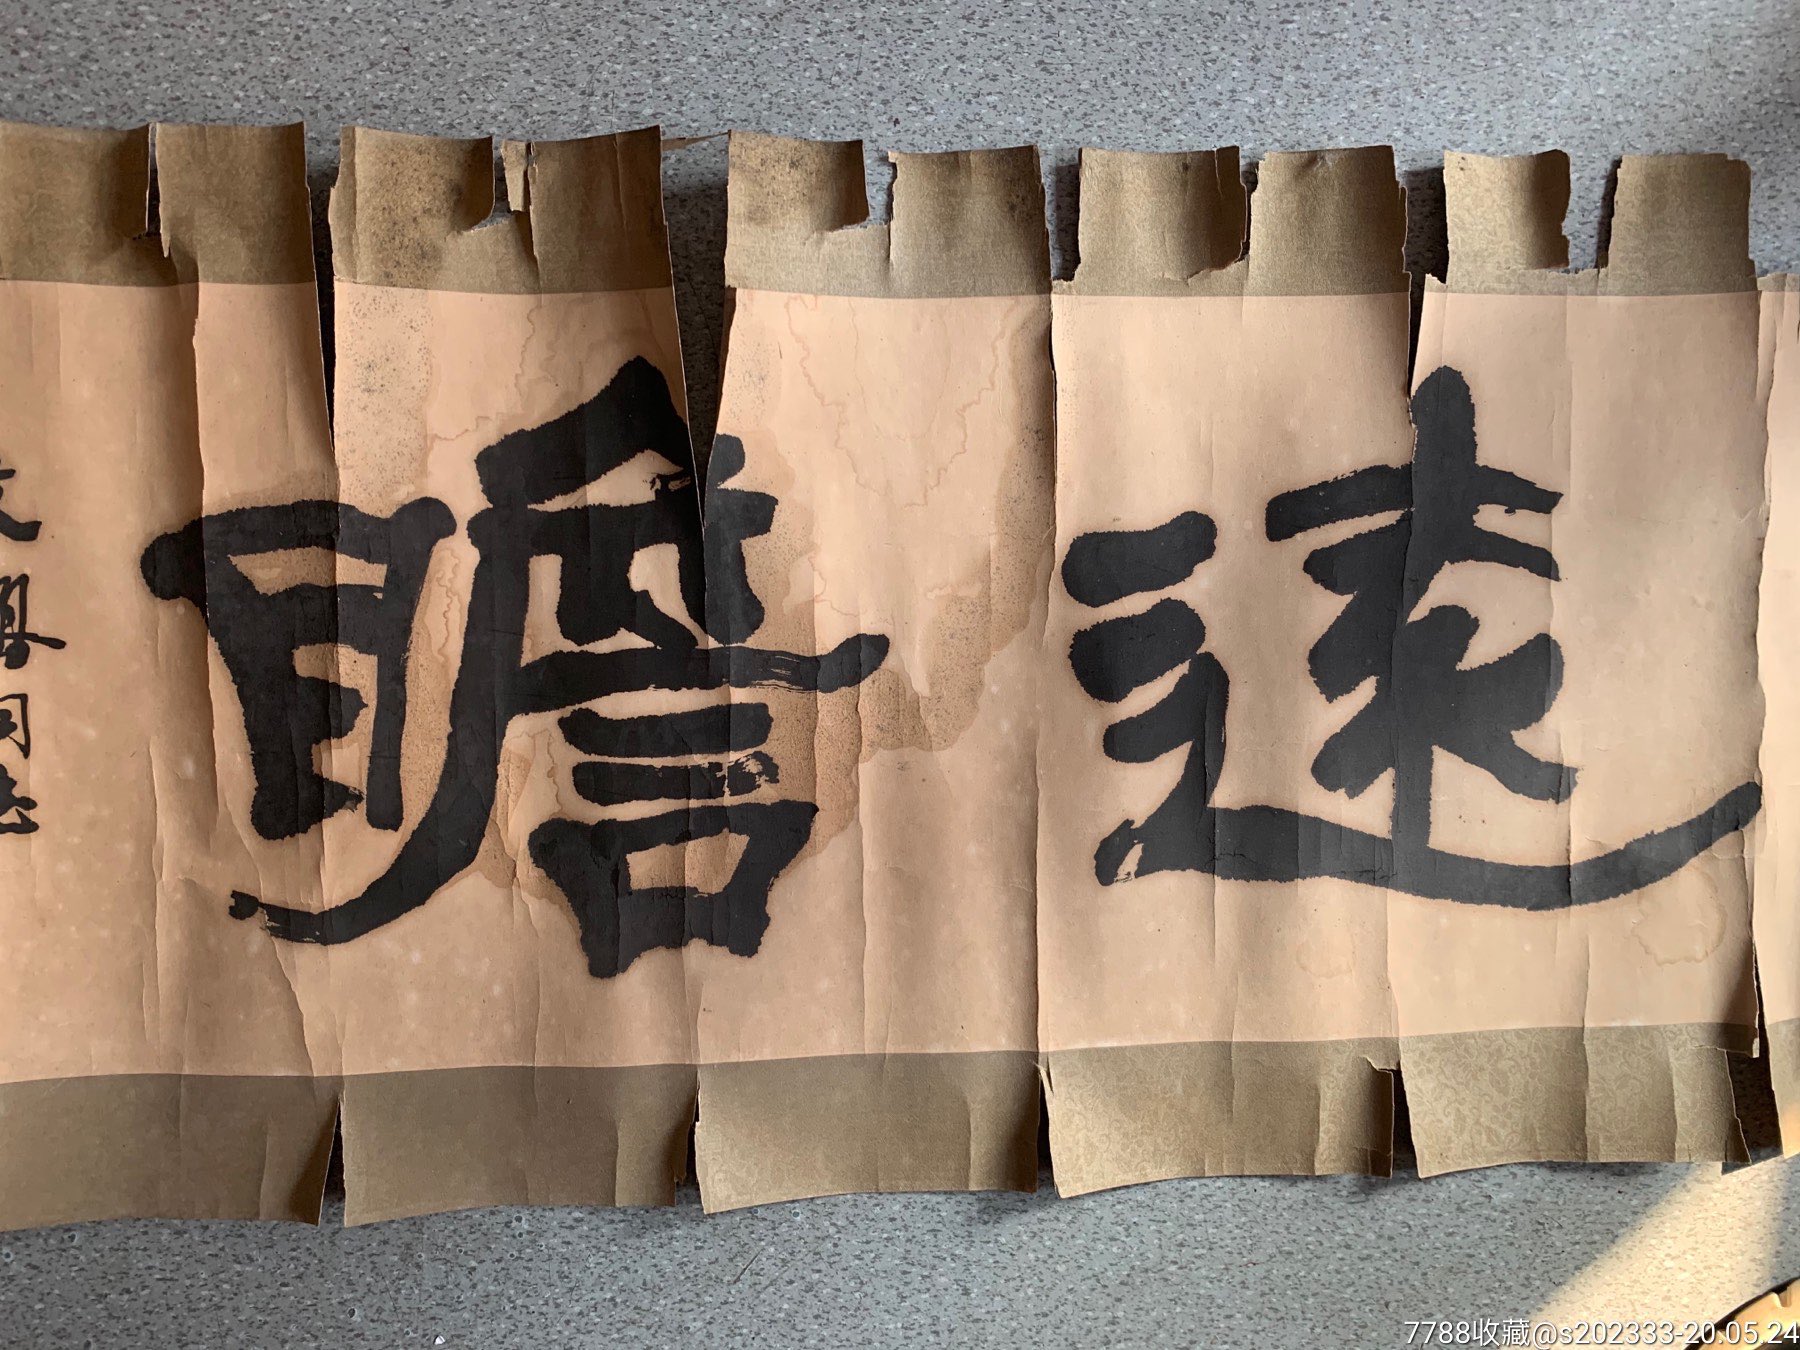 遠瞻
同志
7788收藏@s202333-20.05.24